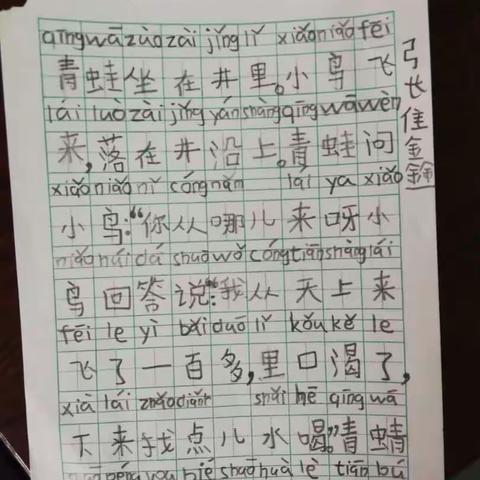 qīngwāzuòzài jǐnglǐ xiǎoniǎofēi
青蛙坐在井里。小鸟飞
lái luòzài jǐngyánshàngqīngwāwèn
来,落在井沿上。青蛙问
xiǎoniǎonǐ cóngnǎr lái ya xiǎo
小鸟:“你从哪儿来呀小
niǎohuídá shuōwǒcóngtiānshànglái
鸟回答说:“我从天上来
fēi le yì bǎiduōlǐ kǒukě le
飞了一百多,里口渴了,
xià lái zhǎodiǎnr shuǐ hē qīngwā
下来找点儿水喝。”青蜻
弓长佳金